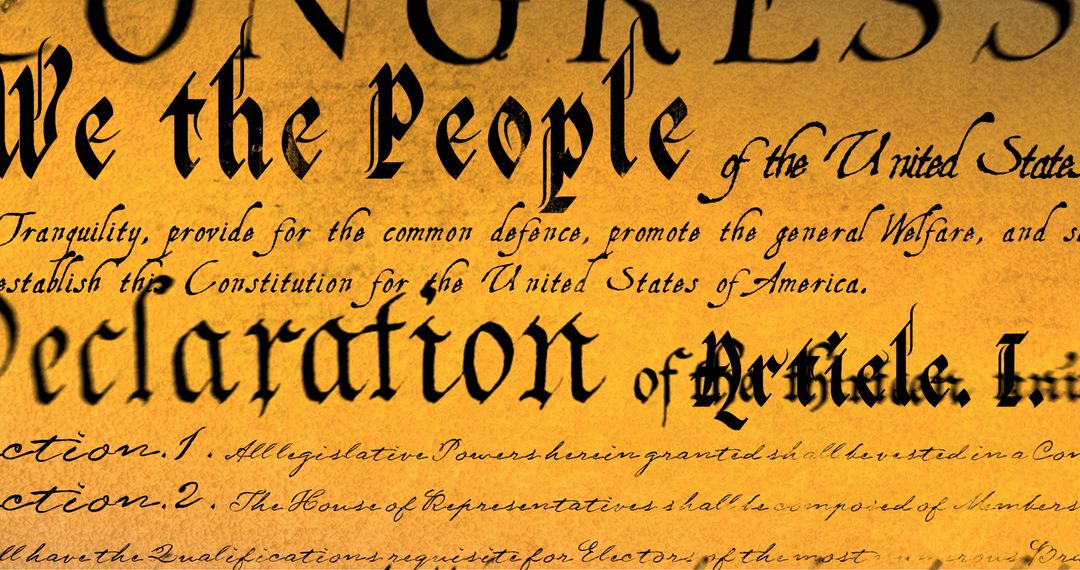 CONGRESS
We the People of the United States
Tranquility, provide for the common defence, promote the general Welfare, and s
establish this Constitution for the United States of America.
Declaration of the thirteen uni
Article. I.
ction.1. All legislative Powers herein granted shall be vested in a Con
ction.2. The House of Representatives shall be composed of Members
ll have the Qualifications requisite for Electors of the most numerous Bra